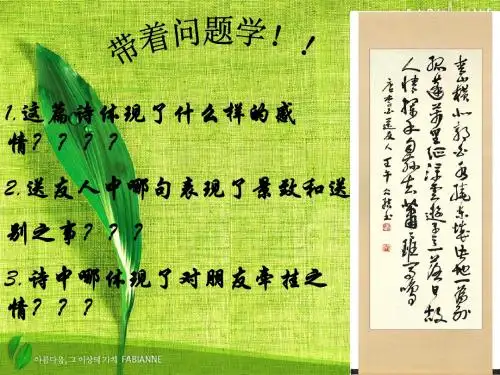 带着问题学！！
1.这篇诗体现了什么样的感
情????
2.送友人中哪句表现了景致和送
别之事???
3.诗中哪体现了对朋友牵挂之
情???
青山横北郭白水绕东城此地一为别
孤蓬万里征浮云游子意落日故
人情挥手自兹去萧班马鸣
唐李白送友人
아름다움, 그 이상의 가치 FABIANNE